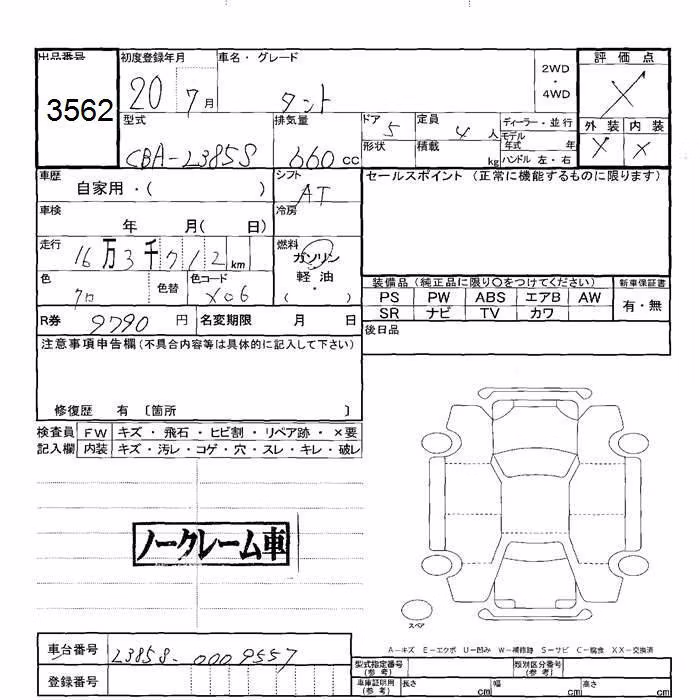 出品番号 初度登録年月 車名・グレード 2WD ・ 4WD 評価点
3562 20 7月 タント X
型式 排気量 ドア 5 定員 4 人 ディーラー・並行 外装 内装
CBA-L385S 660 cc 形状 積載 kg モデル年式 年 X X
ハンドル 左・右
車歴 自家用・( ) シフト AT セールスポイント (正常に機能するものに限ります)
車検 年 月( 日) 冷房
走行 16万3千712km 燃料 ガソリン・軽油・( )
色 クロ 色替 色コード X06 装備品 (純正品に限り○をつけてください) 新車保証書
PS PW ABS エアB AW 有・無
SR ナビ TV カワ
R券 9790 円 名変期限 月 日 後日品
注意事項申告欄(不具合内容等は具体的に記入して下さい)
修復歴 有 〔箇所 〕
検査員 FW キズ・飛石・ヒビ割・リペア跡・×要
記入欄 内装 キズ・汚レ・コゲ・穴・スレ・キレ・破レ
ノークレーム車
スペア
A-キズ E-エクボ U-凹み W-補修跡 S-サビ C-腐食 XX-交換済
車台番号 L385S-0009557 型式指定番号(参考) 類別区分番号(参考)
登録番号 車庫証明用(参考) 長さ cm 幅 cm 高さ cm